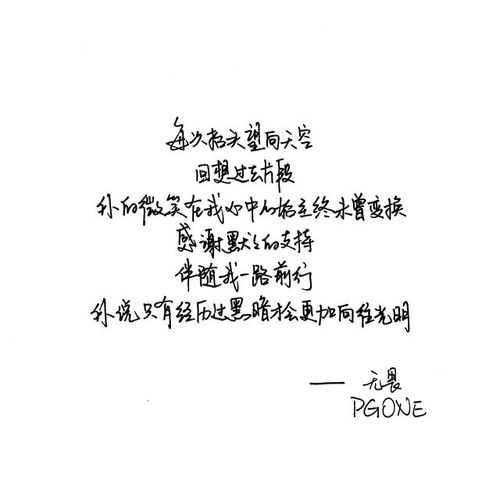 每次抬头望向天空
回想过去片段
你的微笑在我心中的终未曾变换
感谢默默的支持
伴随我一路前行
你说只有经历过黑暗才会更加向往光明
— 无畏
PGONE